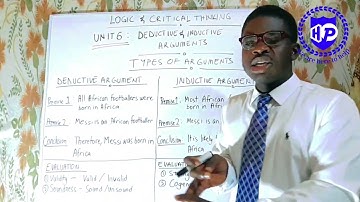 LOGIC & CRITICAL THINKING
UNIT 6: DEDUCTIVE & INDUCTIVE
ARGUMENTS
TYPES OF ARGUMENTS
DEDUCTIVE ARGUMENT
Premise 1: All African footballers were
born in Africa
Premise 2: Messi is an African footballer
Conclusion: Therefore, Messi was born in
Africa
EVALUATION
① Validity - Valid / Invalid
② Soundness - Sound/unsound
INDUCTIVE ARGUMEN
Premise 1: Most African
born in Afri
Premise 2: Messi is an
Conclusion: It is likely
Africa
EVALUAT
① St
② Cogen
HP
We Are Here to Help